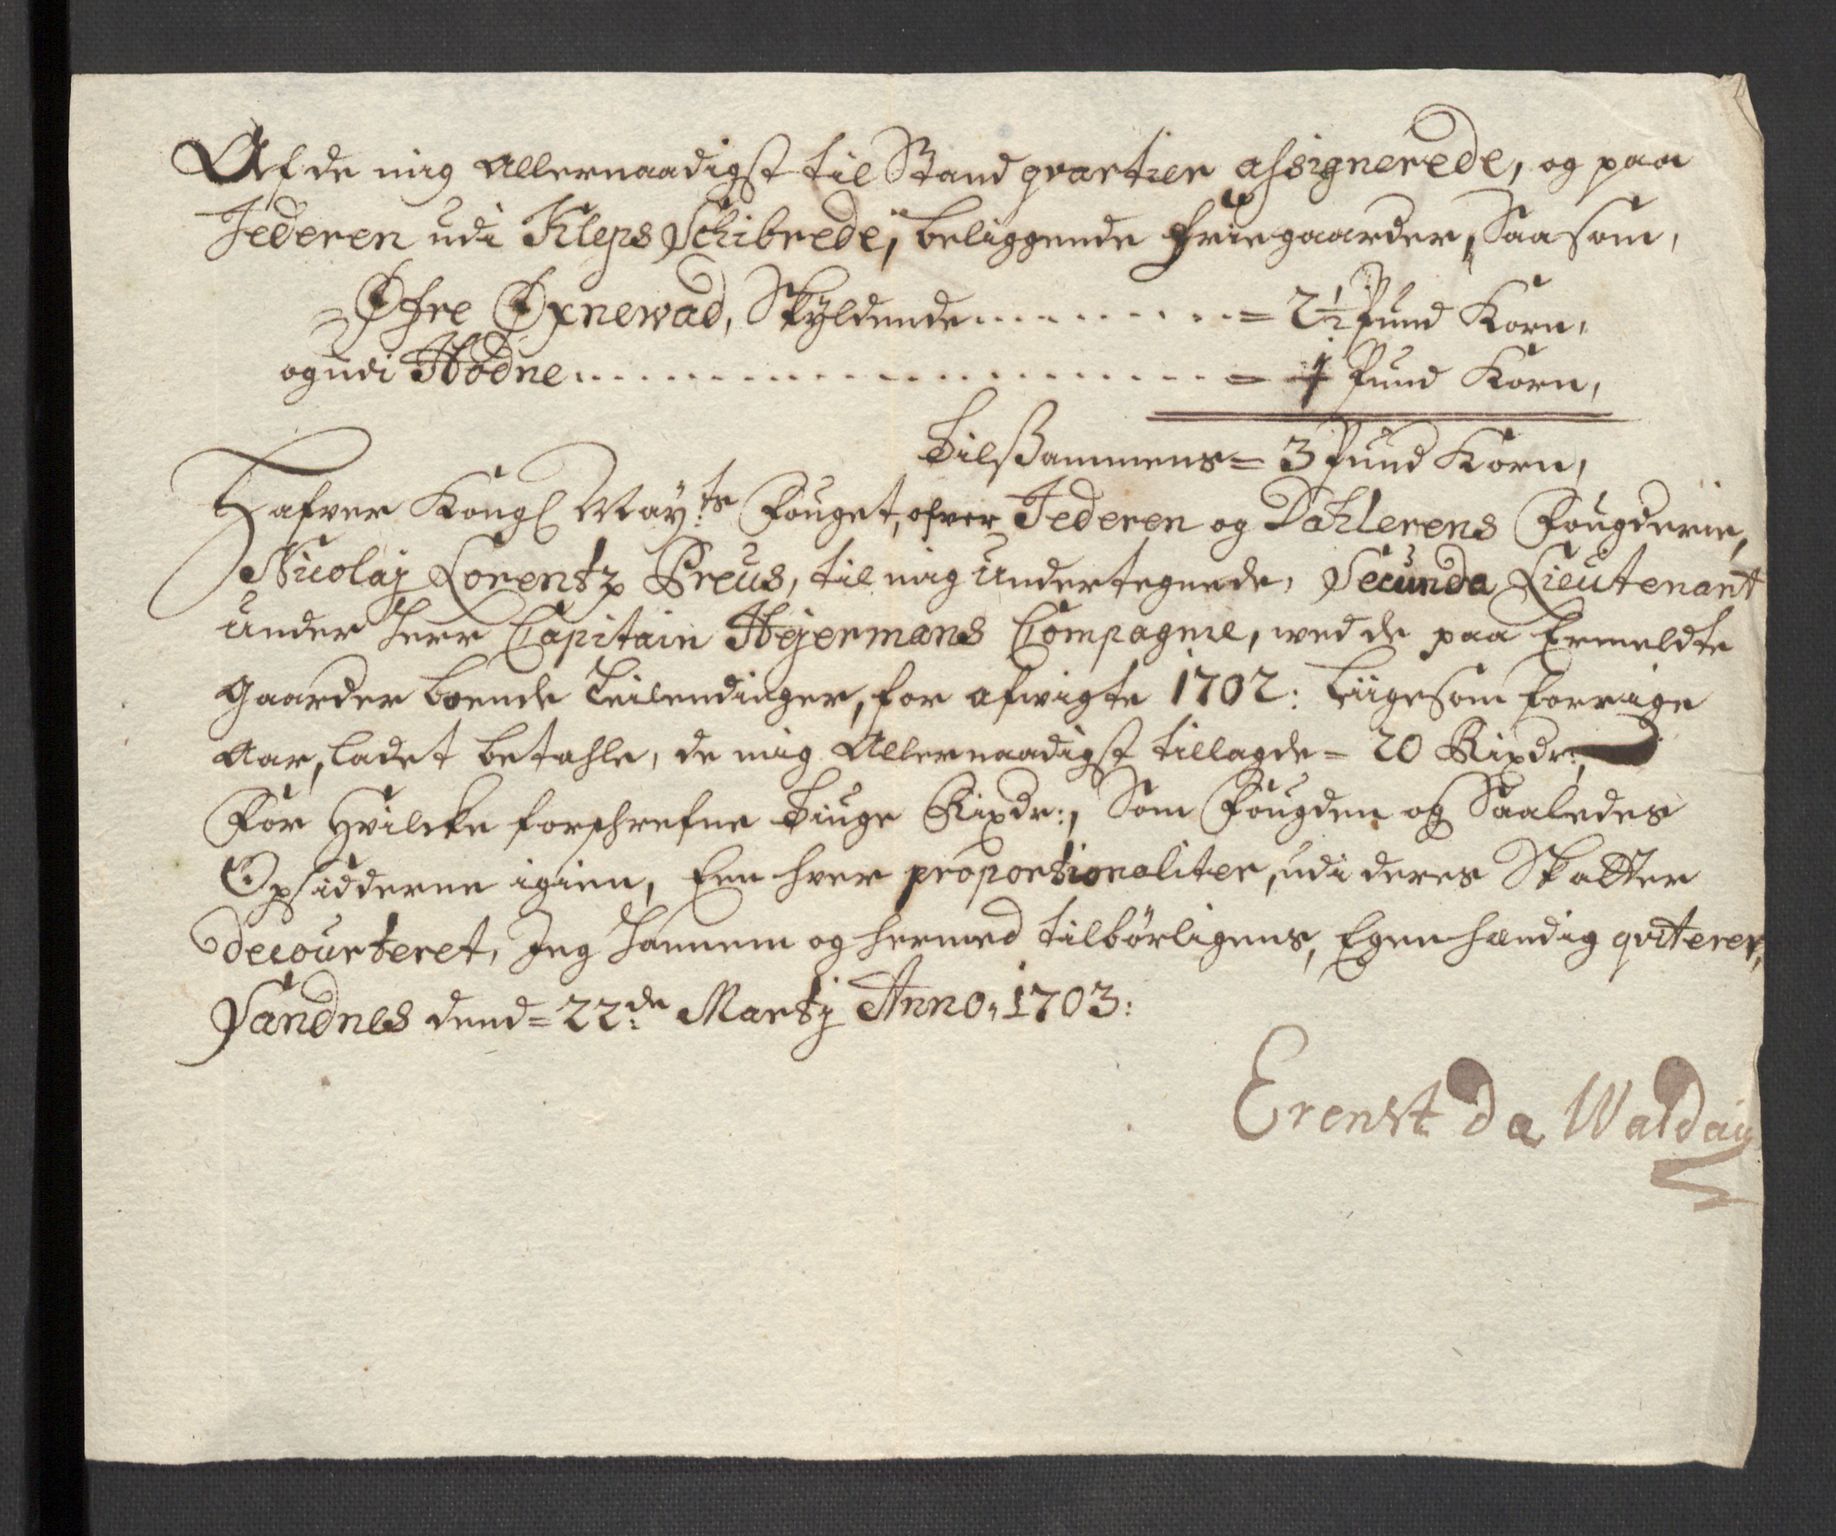 Af de mig Allernaadigst til Standqvartier assignerede, og paa
Jederen udi Kleps Schibrede, beliggende friegaarder, Saasom,
Øfre Øxnewad, Skÿldende . . . . . . . . = 2½ Pund Korn,
og udi Hødne . . . . . . . . . . . . . . . . . . . . = Pund Korn,
Tilsammens = 3 Pund Korn,
Hafver Kongl Maÿ:ts Fouget, ofver Jederen og Dahlerens Fougderie,
Nicolaj Lorentz Preus, til mig Undertegnede, Secunda Lieutenant
under Herr Capitain Hejermans Compagnie, wed de paa Ermeldte
Gaarder boende Leilendinger, for afvigte 1702: Liigesom forrige
Aar, ladet betahle, de mig Allernaadigst tillagde = 20 Rixdr:,
For Hvilcke forschrefne Tiuge Rixdr:, Som Fougden og Saaledes
Opsidderne igien, Een hver proportionaliter, udi deres Skatter
decourteret, Jeg hannem og hermed tilbörligens, Egenhændig qviterer,
Sandnes dend = 22:de Martij Anno, 1703:
Erenst da Waldaü